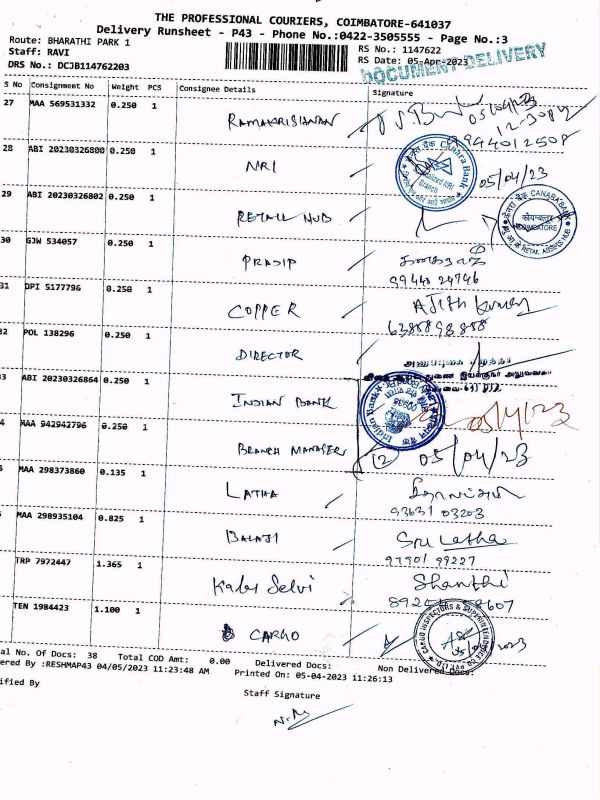 THE PROFESSIONAL COURIERS, COIMBATORE-641037
Delivery Runsheet - P43 - Phone No.:0422-3505555 - Page No.:3
Route: BHARATHI PARK 1
Staff: RAVI
DRS No.: DCJB114762203
RS No.: 1147622
RS Date: 05-Apr-2023
DOCUMENT DELIVERY
S No Consignment No Weight PCS Consignee Details Signature
27 MAA 569531332 0.250 1 RAMAKRISHNAN 05/04/23
9944012508
28 ABI 20230326800 0.250 1 NRI 05/04/23
Canara Bank
NRI
Branch
29 ABI 20230326802 0.250 1 RETAIL HUB
CANARA BANK
कोयम्बत्तूर
COIMBATORE
RETAIL ASSETS HUB
30 GJW 534057 0.250 1 PRADIP
99440 24746
31 DPI 5177796 0.250 1 COPPER AJith Kumar
6388898888
32 POL 138296 0.250 1 DIRECTOR
33 ABI 20230326864 0.250 1 INDIAN BANK 05/4/23
Indian Bank
4 MAA 942942796 0.250 BRANCH MANAGER 05/04/23
5 MAA 298373860 0.135 1 LATHA
93631 03203
MAA 298935104 0.825 1 BALAJI Sru Latha
97901 99227
TRP 7972447 1.365 1 Kalai Selvi Shanthi
TEN 1984423 1.100 1 CARGO
CARGO INSPECTORS & SUPERINTENDENCE CO. PVT. LTD.
al No. Of Docs: 38 Total COD Amt: 0.00 Delivered Docs: Non Delivered Docs:
ered By :RESHMAP43 04/05/2023 11:23:48 AM Printed On: 05-04-2023 11:26:13
ified By Staff Signature